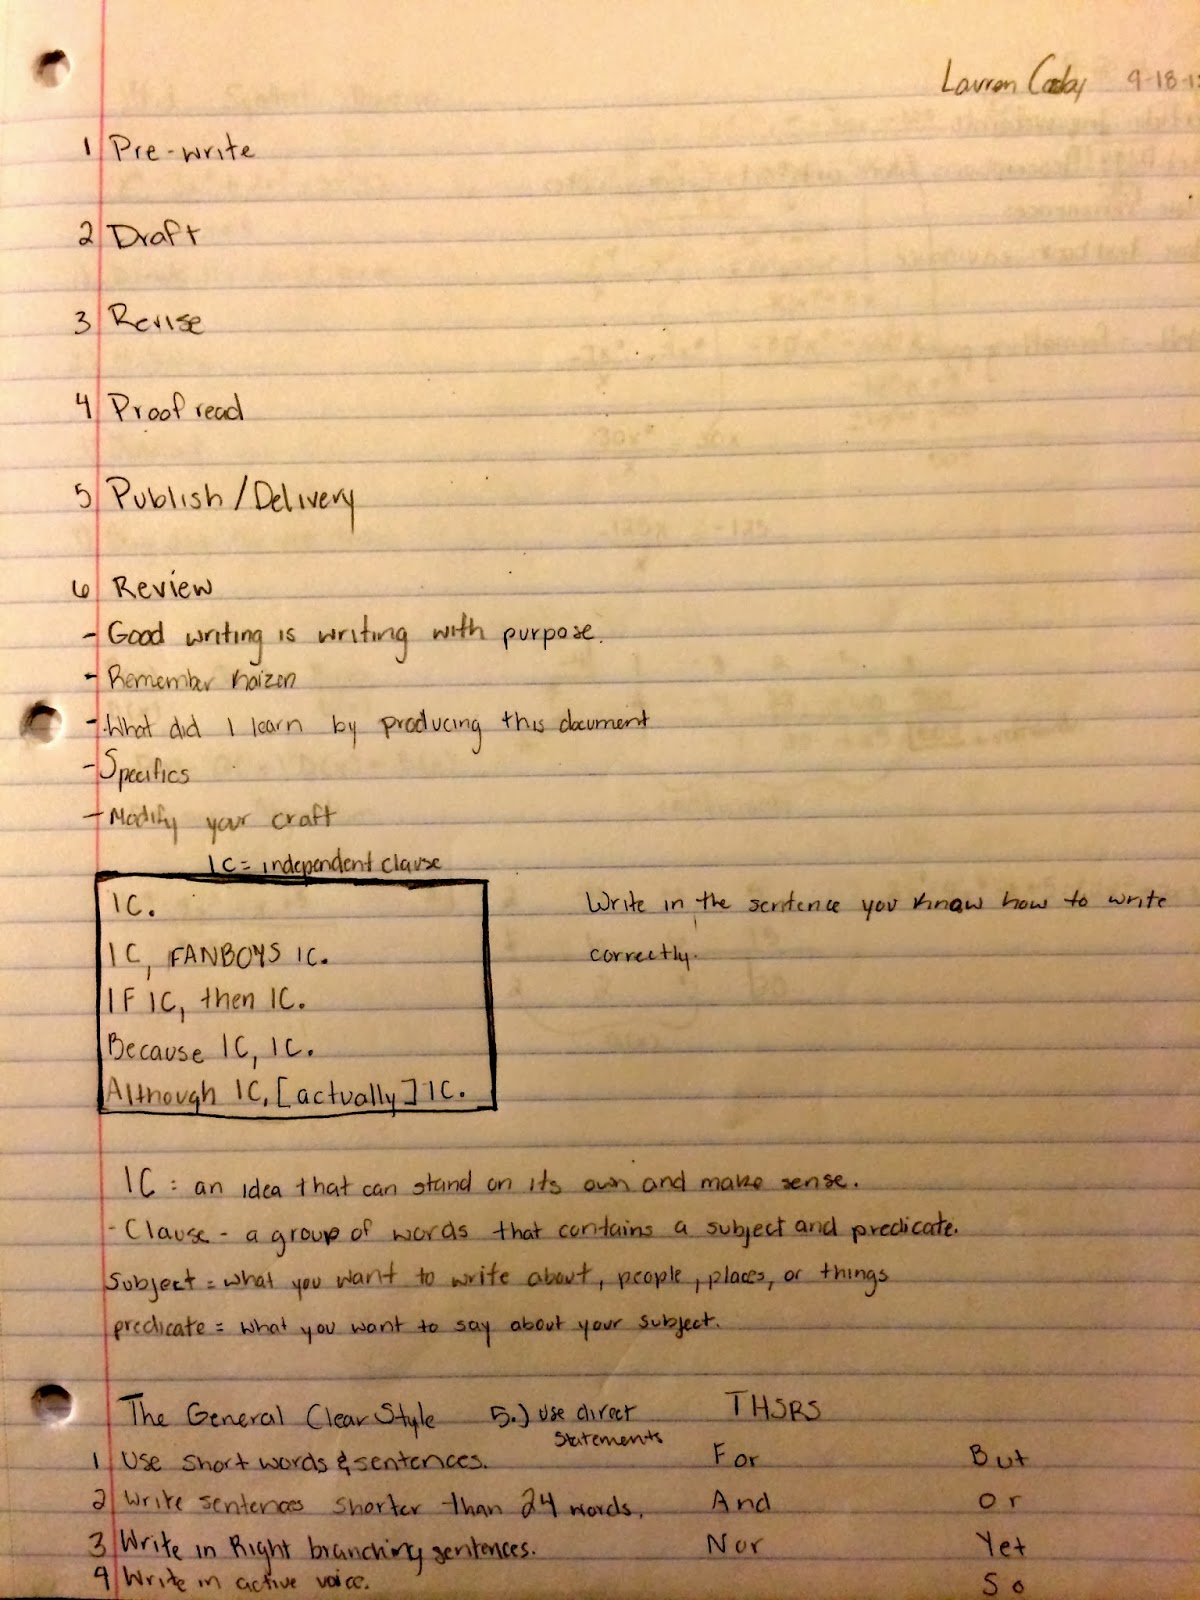 Lauren 9-18-1
1 Pre-write
2 Draft
3 Revise
4 Proofread
5 Publish/Delivery
6 Review
- Good writing is writing with purpose.
- Remember kaizen
- What did I learn by producing this document
- Specifics
- Modify your craft
IC = independent clause
IC.
IC, FANBOYS IC.
IF IC, then IC.
Because IC, IC.
Although IC, [actually] IC.
Write in the sentence you know how to write
correctly.
IC = an idea that can stand on its own and make sense.
- Clause - a group of words that contains a subject and predicate.
Subject = what you want to write about, people, places, or things
predicate = what you want to say about your subject.
The General Clear Style
1 Use short words & sentences.
2 Write sentences shorter than 24 words.
3 Write in Right branching sentences.
4 Write in active voice.
5.) Use direct
statements
THSRS
For
And
Nor
But
Or
Yet
So